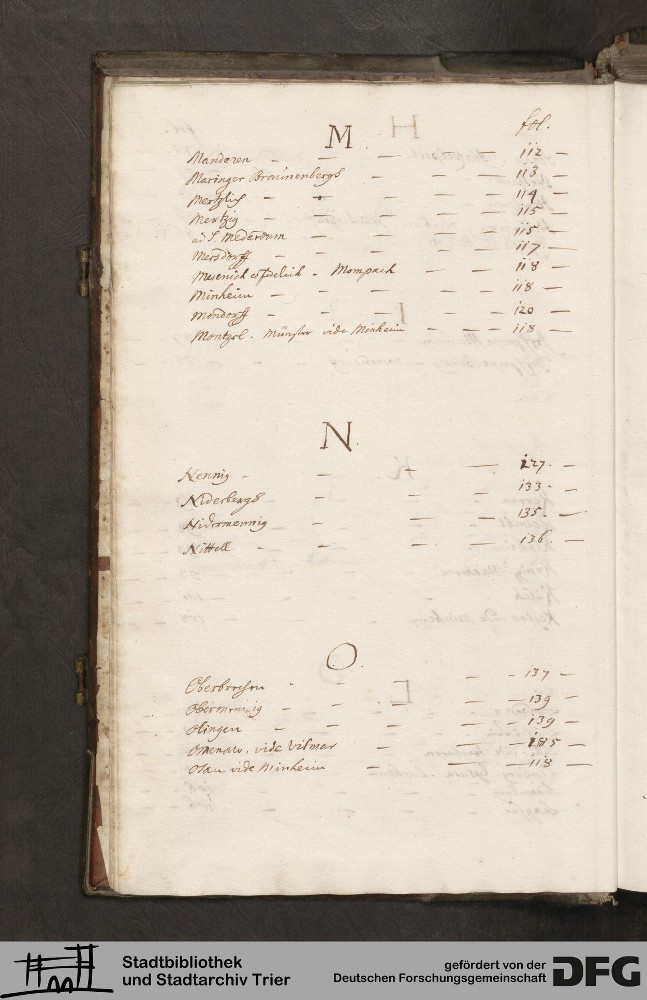 M
fol.
Manderen - - - - 112 -
Maringer Braunenbergh - - - 113 -
Mertzlich - - - - - 114 -
Mertzig - - - - - 115 -
ad S. Mederdum - - - - 115 -
Mersdorff - - - - 117 -
Mesenich - Mompach - - - 118 -
Minheim - - - - - 118 -
Mondorff - - - - - 120 -
Montzel. Münster vide Minheim - - - 118 -
N.
Nennig - - - - 127. -
Niderbergh - - - 133 -
Nidermennig - - - 135. -
Nittell - - - - 136. -
O.
- - - - 137 -
Obermennig - - - - 139 -
Olingen - - - - - 139 -
Omenaw. vide Vilmar - - - 185 -
Osan vide Minheim - - - 118 -
Stadtbibliothek
und Stadtarchiv Trier
gefördert von der
Deutschen Forschungsgemeinschaft
DFG